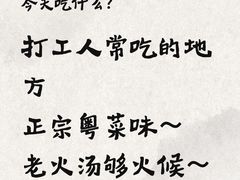 今天吃什么?
打工人常吃的地
方
正宗粤菜味~
老火汤够火候~